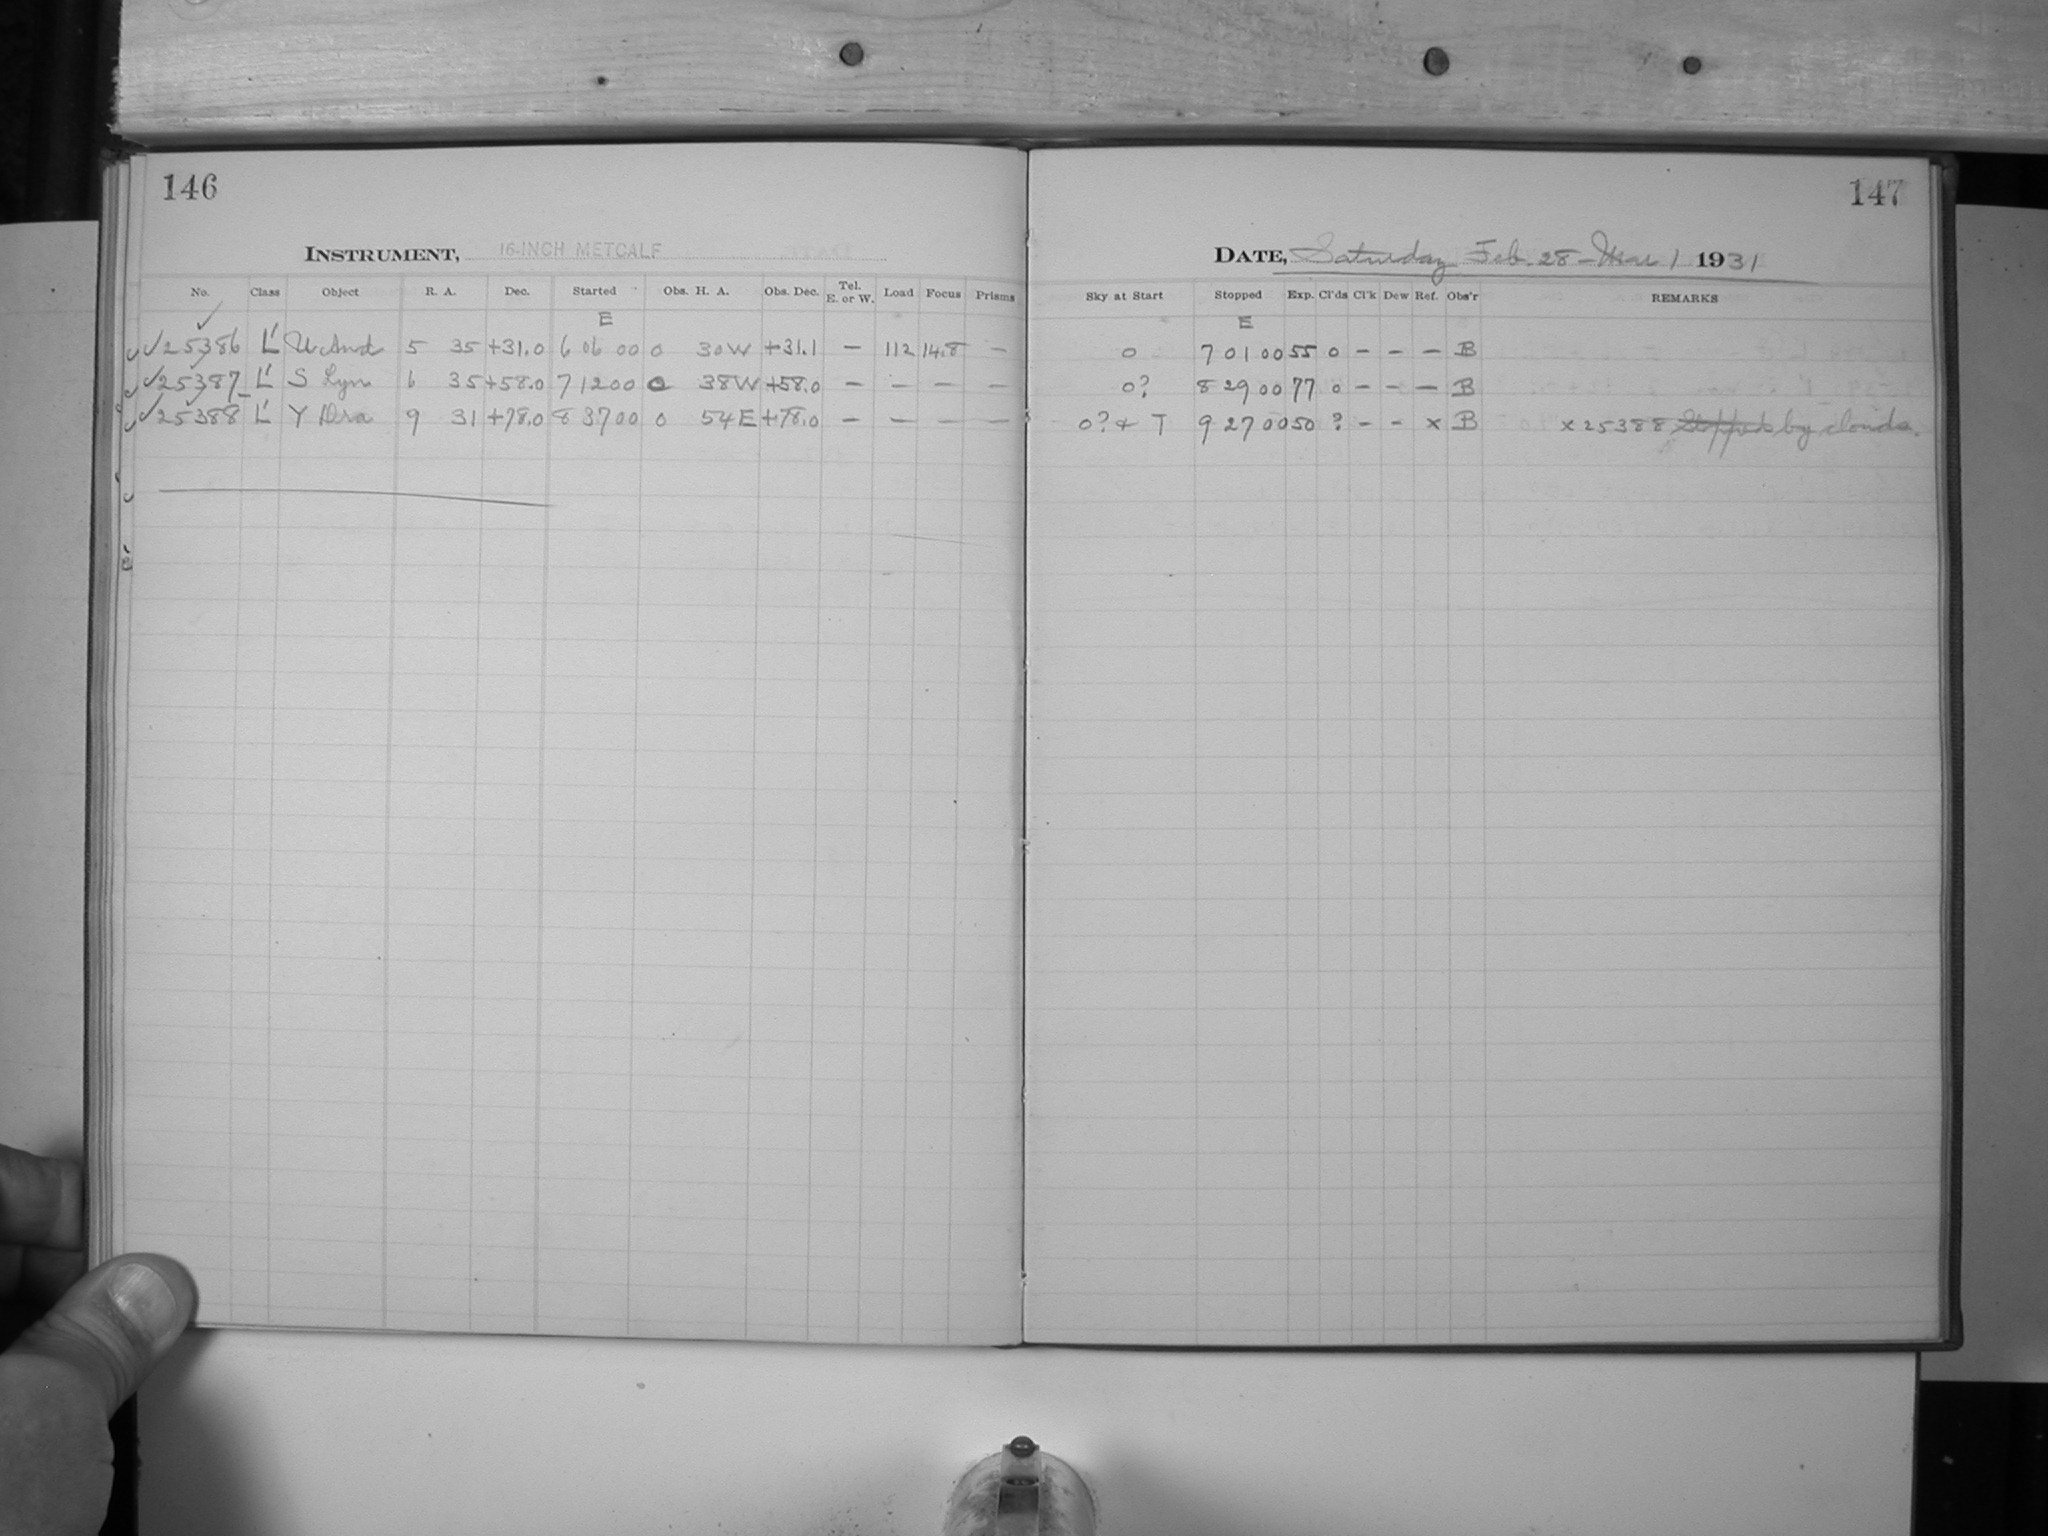 146
INSTRUMENT, 16-INCH METCALF
No. Class Object R. A. Dec. Started Obs. H. A. Obs. Dec. Tel. E. or W. Load Focus Prisms
E
✓25386 L' U And 5 35 +31.0 6 06 00 0 30W +31.1 — 112 14.8 —
✓25387 L' S Lyn 6 35 +58.0 7 12 00 0 38W +58.0 — — — —
✓25388 L' Y Dra 9 31 +78.0 8 37 00 0 54E +78.0 — — — —
147
DATE, Saturday Feb. 28 - Mar 1 1931
Sky at Start Stopped Exp. Cl'ds Cl'k Dew Ref. Obs'r REMARKS
E
0 7 01 00 55 0 — — — B
0? 8 29 00 77 0 — — — B
0? & T 9 27 00 50 ? — — x B x 25388 Stopped by clouds.